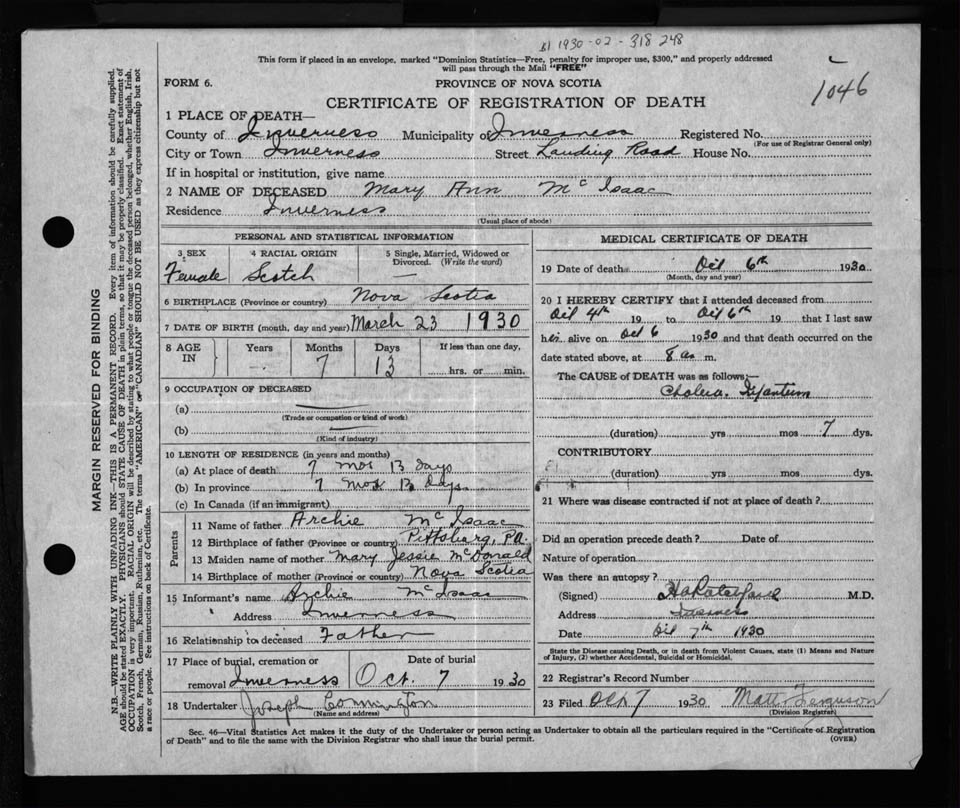 1930-02-318 248
This form if placed in an envelope, marked "Dominion Statistics—Free, penalty for improper use, $300," and properly addressed
will pass through the Mail "FREE"
FORM 6.
PROVINCE OF NOVA SCOTIA
1046
CERTIFICATE OF REGISTRATION OF DEATH
1 PLACE OF DEATH—
County of Inverness Municipality of Inverness Registered No.
(For use of Registrar General only)
City or Town Inverness Street Landing Road House No.
If in hospital or institution, give name
2 NAME OF DECEASED Mary Ann McIsaac
Residence Inverness
(Usual place of abode)
PERSONAL AND STATISTICAL INFORMATION
3 SEX 4 RACIAL ORIGIN 5 Single, Married, Widowed or
Divorced. (Write the word)
Female Scotch —
6 BIRTHPLACE (Province or country) Nova Scotia
7 DATE OF BIRTH (month, day and year) March 23 1930
8 AGE IN Years Months Days If less than one day,
— 7 13 hrs. or min.
9 OCCUPATION OF DECEASED
(a)
(Trade or occupation or kind of work)
(b)
(Kind of industry)
10 LENGTH OF RESIDENCE (in years and months)
(a) At place of death 7 mos 13 days
(b) In province 7 mos 13 Days
(c) In Canada (if an immigrant)
Parents
11 Name of father Archie McIsaac
12 Birthplace of father (Province or country) Pittsburg, PA.
13 Maiden name of mother Mary Jessie McDonald
14 Birthplace of mother (Province or country) Nova Scotia
15 Informant's name Archie McIsaac
Address Inverness
16 Relationship to deceased Father
17 Place of burial, cremation or Date of burial
removal Inverness Oct. 7 1930
18 Undertaker Joseph
(Name and address)
MEDICAL CERTIFICATE OF DEATH
19 Date of death Oct 6th 1930
(Month, day and year)
20 I HEREBY CERTIFY that I attended deceased from
Oct 4th 19 to Oct 6th 19 that I last saw
h alive on Oct 6 1930 and that death occurred on the
date stated above, at 8 a m.
The CAUSE OF DEATH was as follows:
Cholera Infantum
(duration) yrs mos 7 dys.
CONTRIBUTORY
(duration) yrs mos dys.
21 Where was disease contracted if not at place of death?
Did an operation precede death? Date of
Nature of operation
Was there an autopsy?
(Signed) M.D.
Address Inverness
Date Oct 7th 1930
State the Disease causing Death, or in death from Violent Causes, state (1) Means and Nature
of Injury, (2) whether Accidental, Suicidal or Homicidal.
22 Registrar's Record Number
23 Filed Oct 7 1930 Matt. Ferguson
(Division Registrar)
Sec. 46—Vital Statistics Act makes it the duty of the Undertaker or person acting as Undertaker to obtain all the particulars required in the "Certificate of Registration
of Death" and to file the same with the Division Registrar who shall issue the burial permit.
(OVER)
MARGIN RESERVED FOR BINDING
N.B.—WRITE PLAINLY WITH UNFADING INK—THIS IS A PERMANENT RECORD. Every item of information should be carefully supplied.
AGE should be stated EXACTLY. PHYSICIANS should STATE CAUSE OF DEATH in plain terms, so that it may be properly classified. Exact statement of
OCCUPATION is very important. RACIAL ORIGIN will be described by stating to what people or tongue the deceased person belonged, whether English, Irish,
Scotch, French, German, Russian, Ruthenian, etc. The terms "AMERICAN" or "CANADIAN" SHOULD NOT BE USED as they express citizenship but not
a race or people. Fee instructions on back of Certificate.